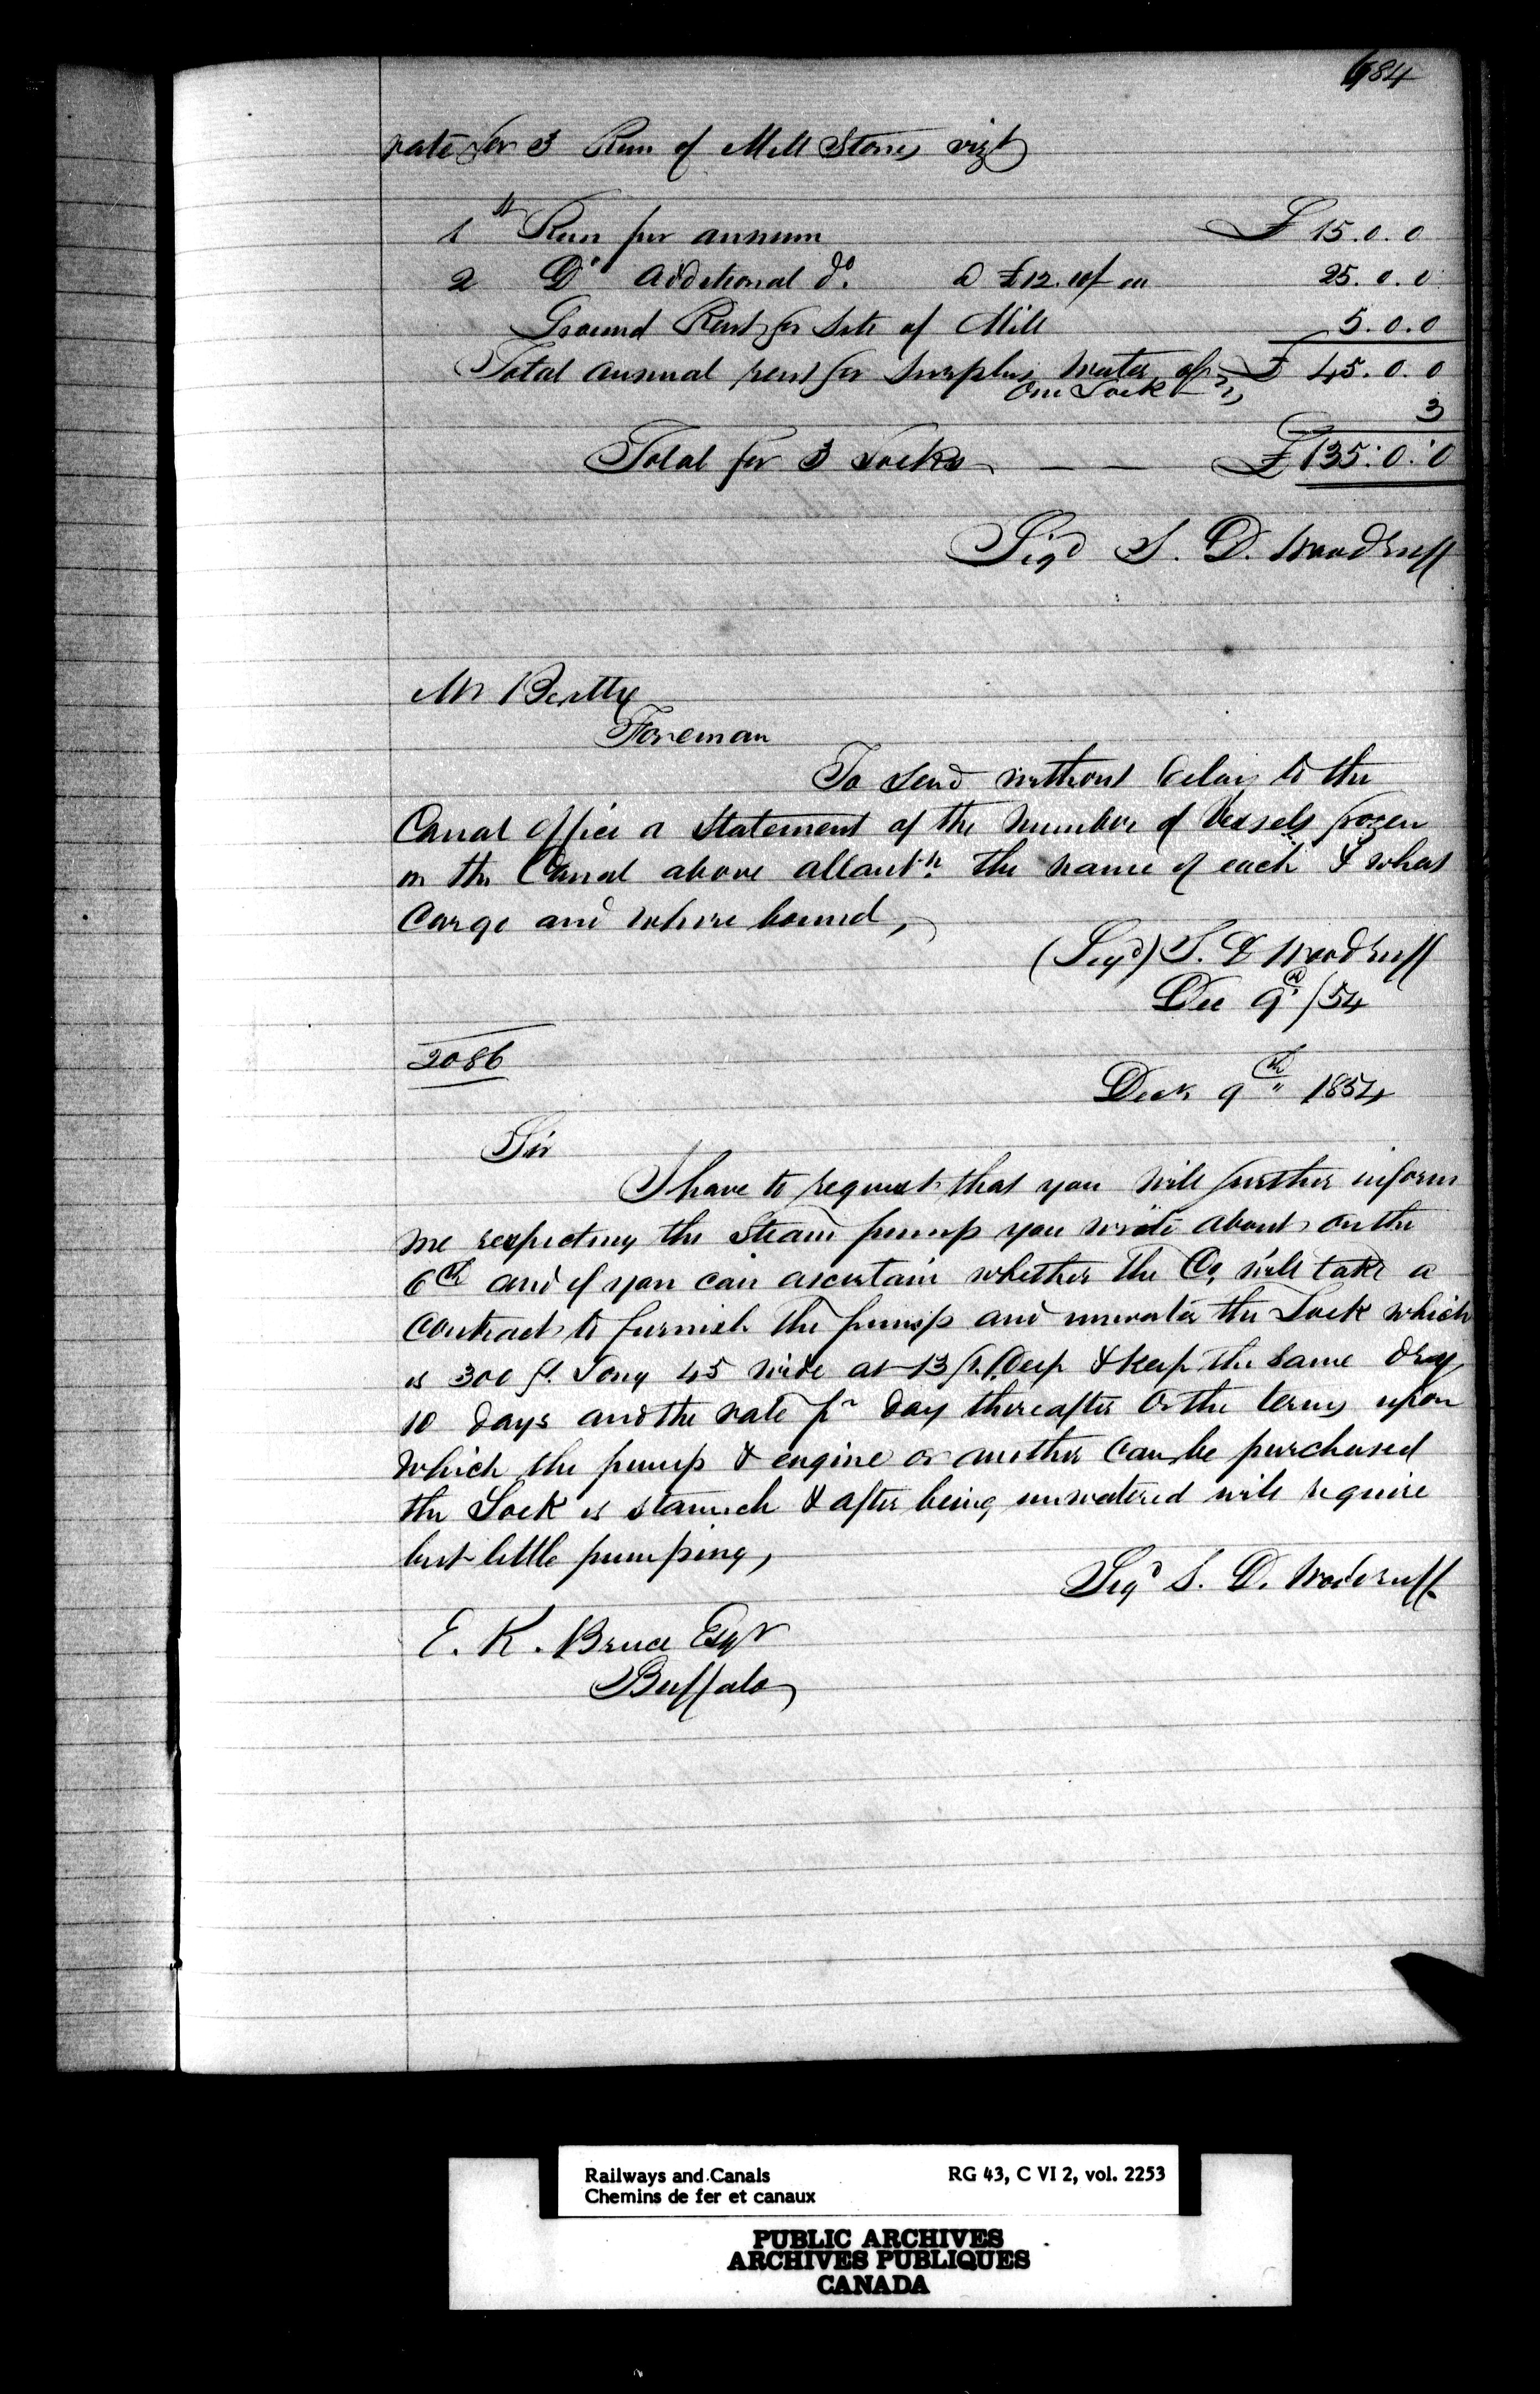 684
rate for 3 Run of Mill Stones vizt
1st Run per annum £ 15.0.0
2 Do additional do. @ £12.10/ ea 25.0.0
Ground Rent for Site of Mill 5.0.0
Total annual rent for Surplus Water of £ 45.0.0
One Lock
3
Total for 3 Locks £135:0:0
Sigd S. D. Woodruff
Mr Beatty
Foreman
To send without delay to the
Canal Office a Statement of the Number of Vessels frozen
in the Canal above allanbh. the name of each & what
Cargo and where bound,
(Sigd) S. D Woodruff
Dec 9th /54
2086
Decr 9th 1854
Sir
I have to request that you will further inform
me respecting the Steam pump you wrote about on the
6th and if you can ascertain whether the Co, will take a
Contract to furnish the pump and unwater the Lock which
is 300 ft. Long 45 wide at 13 ft. Deep & keep the same dry
10 days and the rate pr day thereafter Or the terms upon
which the pump & engine or another can be purchased
the Lock is staunch & after being unwatered will require
but little pumping,
Sigd S. D. Woodruff
E. K. Bruce Esqr
Buffalo
Railways and Canals RG 43, C VI 2, vol. 2253
Chemins de fer et canaux
PUBLIC ARCHIVES
ARCHIVES PUBLIQUES
CANADA